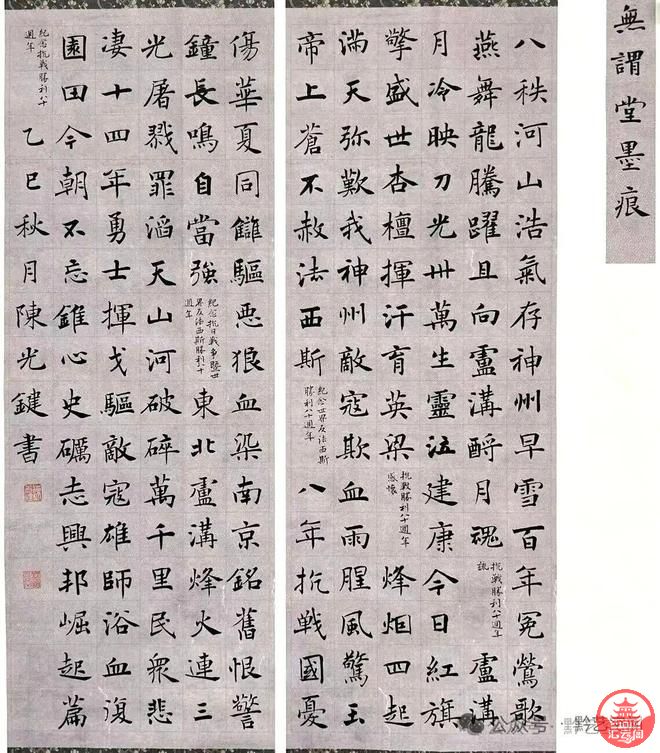 無謂堂墨痕
八秩河山浩氣存神州早雪百年冤鶯歌
燕舞龍騰躍且向盧溝酹月魂
抗戰勝利八十週年
誌
盧溝
月冷映刀光卅萬生靈泣建康今日紅旗
擎盛世杏檀揮汗育英梁
抗戰勝利八十週年
感懷
烽炬四起
滿天弥歎我神州敵寇欺血雨腥風驚玉
帝上蒼不赦法西斯
紀念世界反法西斯
勝利八十週年
八年抗戰國憂
傷華夏同讎驅惡狼血染南京銘舊恨警
鐘長鳴自當強
紀念抗日戰争暨世
界反法西斯勝利八十
週年
東北盧溝烽火連三
光屠戮罪滔天山河破碎萬千里民衆悲
淒十四年勇士揮戈驅敵寇雄師浴血復
園田今朝不忘錐心史礪志興邦崛起篇
紀念抗戰勝利八十
週年
乙巳秋月陳光鍵書
公众号·黔
汇云间